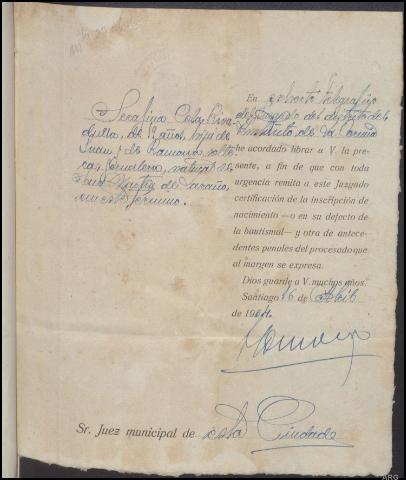 Serafina Cota
de años, hija de
Juan y de Ramona, solte
ra, natural de
San Martin de
en este termino.
En exhorto telegrafico
del Juzgado del distrito del
Instituto de La Coruña
he acordado librar a V. la pre-
sente, a fin de que con toda
urgencia remita a este Juzgado
certificación de la inscripción de
nacimiento —o en su defecto de
la bautismal— y otra de antece-
dentes penales del procesado que
al margen se expresa.
Dios guarde a V. muchos años.
Santiago 16 de Abril
de 19
Sr. Juez municipal de esta Ciudad
ARG